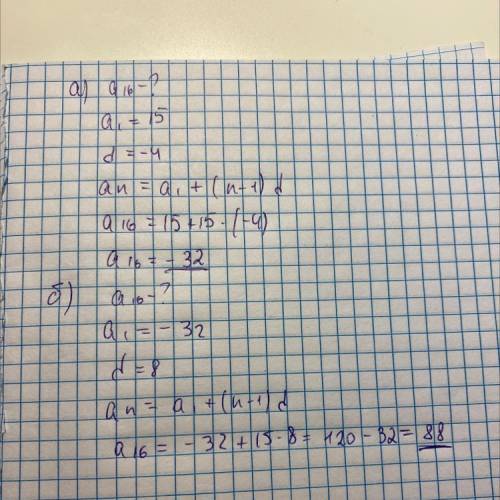 а) a₁₆ - ?
a₁ = 15
d = -4
an = a₁ + (n-1) d
a₁₆ = 15 + 15 · (-4)
a₁₆ = - 32
б) a₁₆ - ?
a₁ = - 32
d = 8
an = a₁ + (n-1) d
a₁₆ = - 32 + 15 · 8 = 120 - 32 = 88